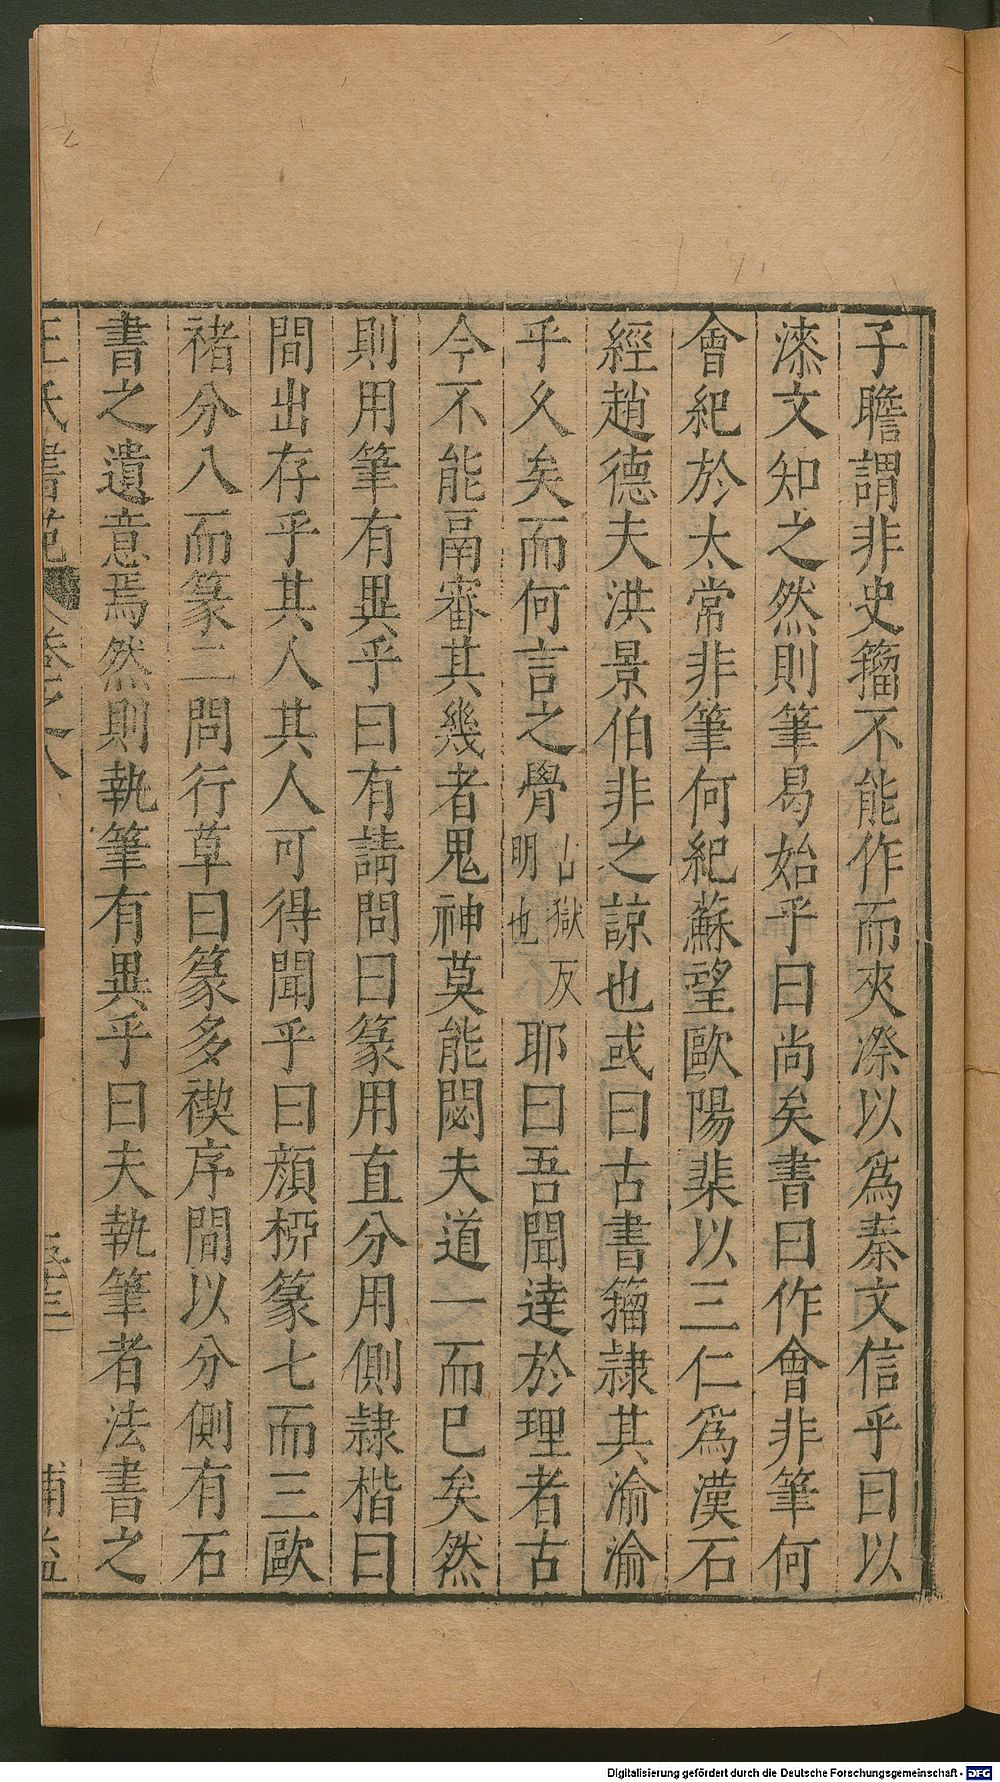 子瞻謂非史籀不能作而夾漈以爲秦文信乎曰以
漆文知之然則筆曷始乎曰尚矣書曰作會非筆何
會紀於太常非筆何紀蘇望歐陽棐以三仁爲漢石
經趙德夫洪景伯非之諒也或曰古書籀隷其淪淪
乎久矣而何言之覺占獄反明也耶曰吾聞達於理者古
今不能鬲審其幾者鬼神莫能閟夫道一而巳矣然
則用筆有異乎曰有請問曰篆用直分用側隷楷曰
間出存乎其人其人可得聞乎曰顔桞篆七而三歐
禇分八而篆二問行草曰篆多禊序間以分側有石
書之遺意焉然則執筆有異乎曰夫執筆者法書之
王氏書苑 卷之八
補益
Digitalisierung gefördert durch die Deutsche Forschungsgemeinschaft - DFG